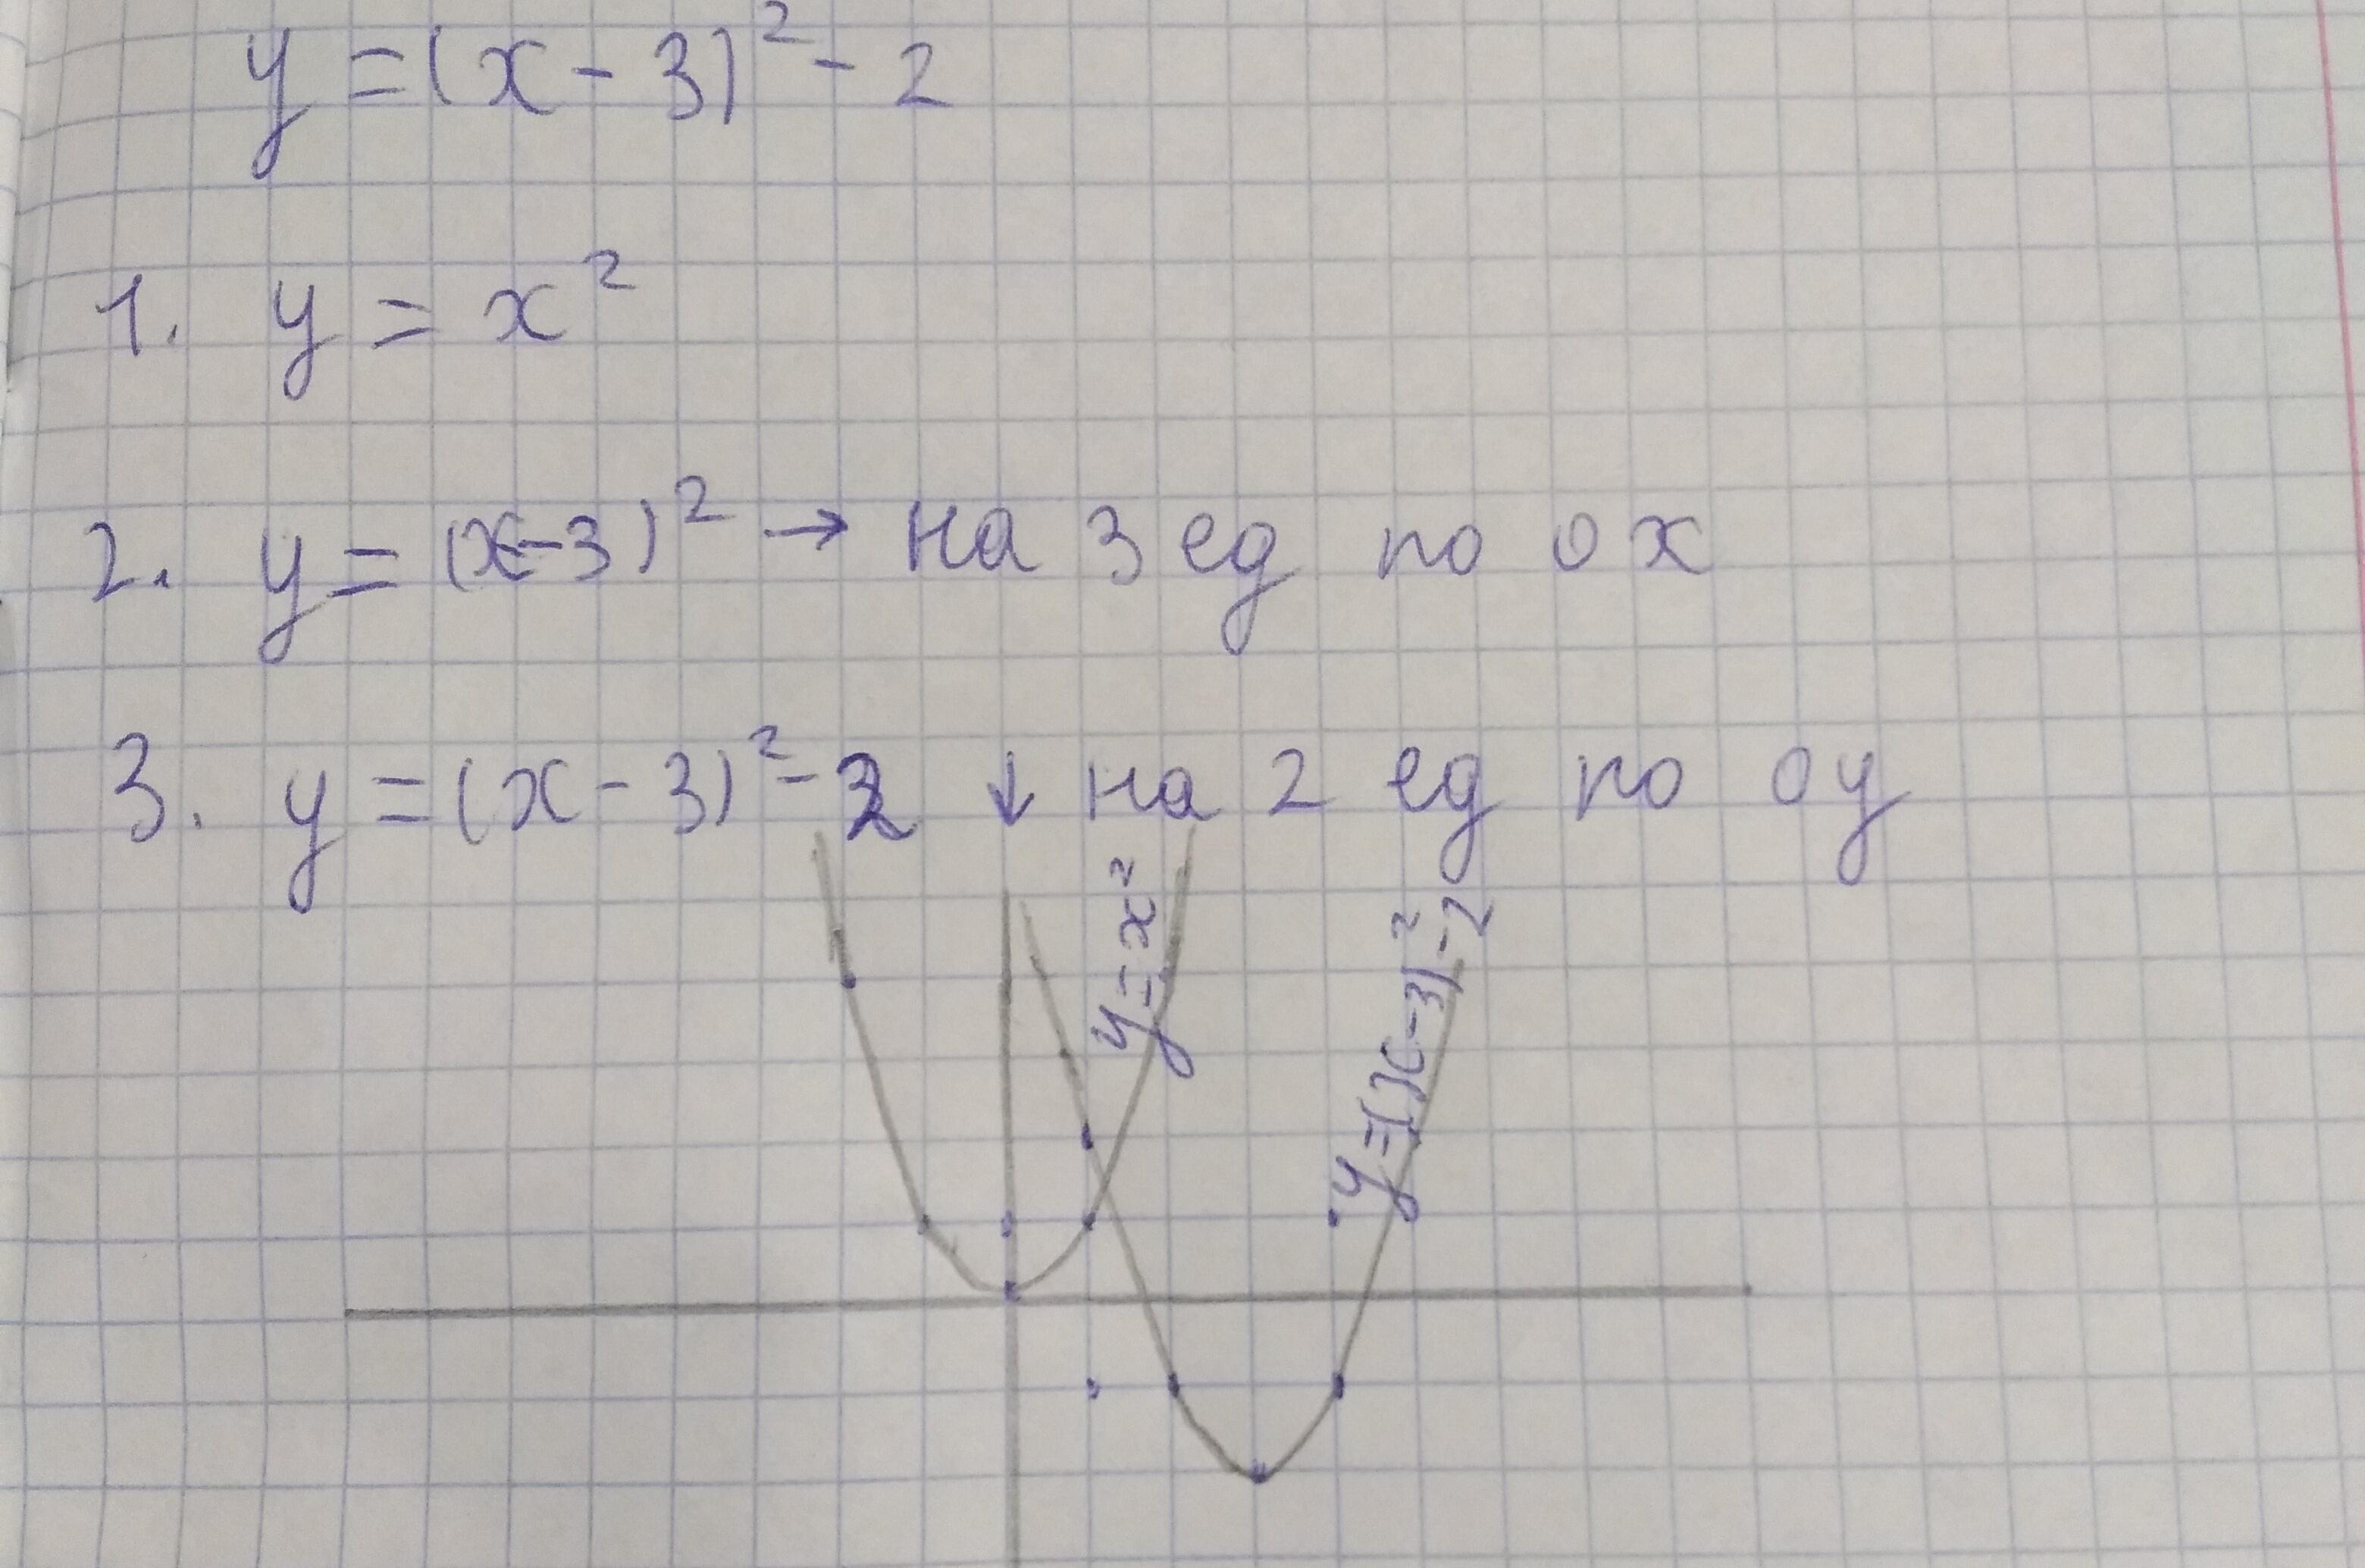 y = (x - 3)² - 2
1. y = x²
2. y = (x-3)² → на 3 ед по ox
3. y = (x - 3)² - 2 ↓ на 2 ед по oy
y = x²
y = (x - 3)² - 2